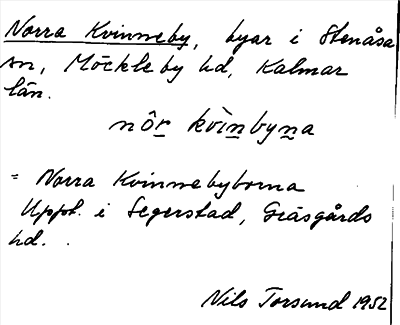 Norra Kvinneby, byar i Stenåsa
sn, Möckleby hd, Kalmar
län.
nôr kvìnbyna
= Norra Kvinnebyborna
Uppt. i Segerstad, Gräsgårds
hd.
Nils Torsund 1952